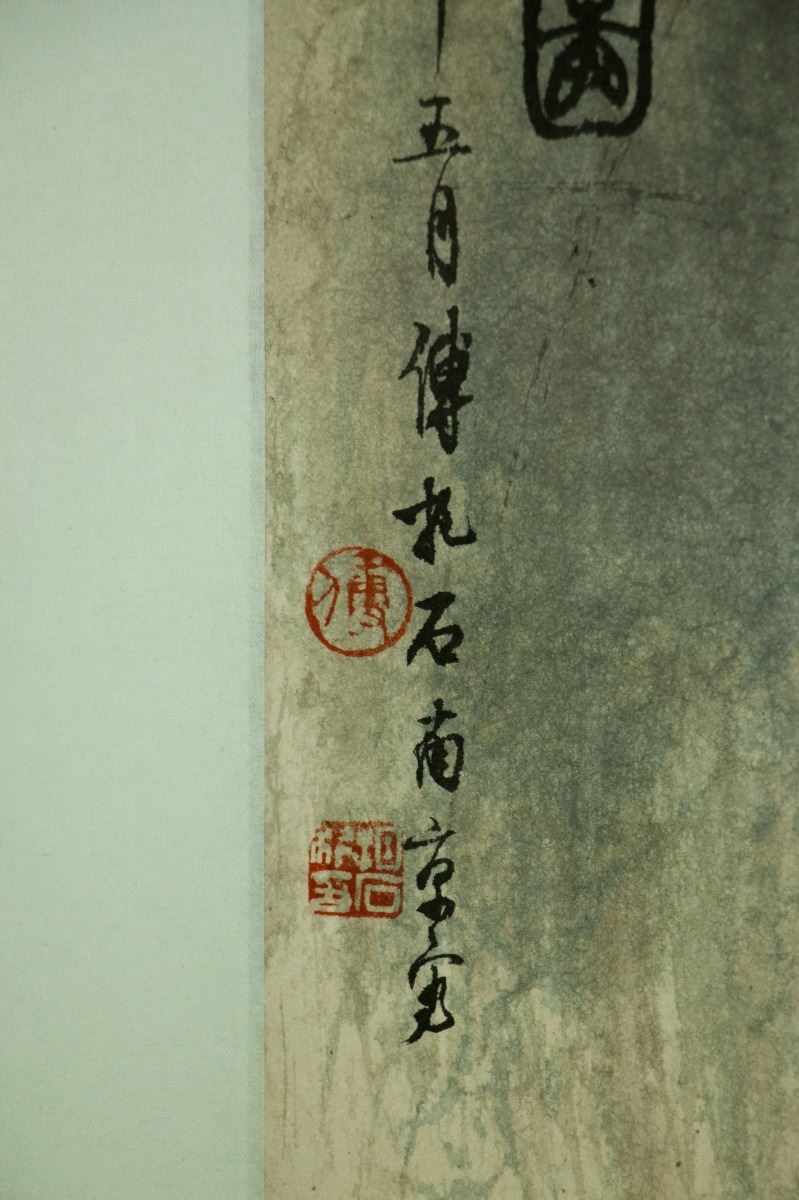 圖
五月傅抱石南京寫
傅
抱石私印